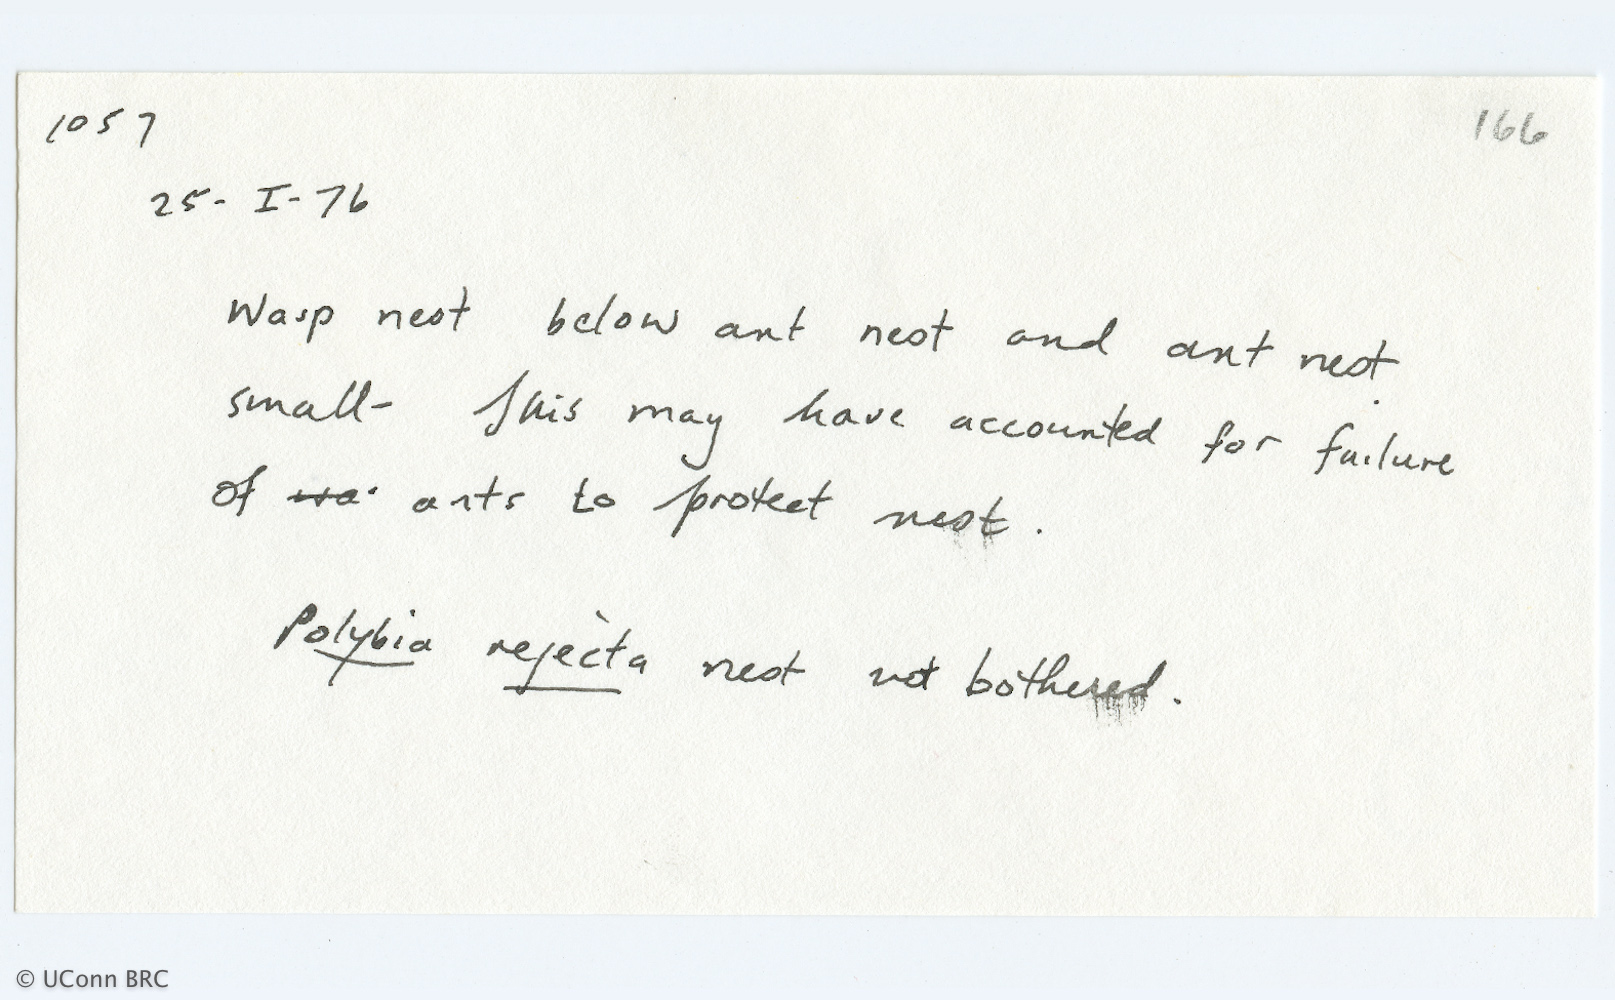 1057
166
25-I-76
Wasp nest below ant nest and ant nest
small- This may have accounted for failure
of wa ants to protect nest.
Polybia rejecta nest not bothered.
© UConn BRC